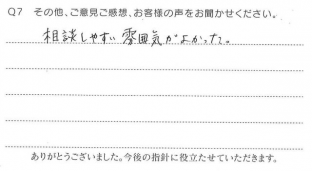 Q7 その他、ご意見ご感想、お客様の声をお聞かせください。
相談しやすい雰囲気がよかった。
ありがとうございました。今後の指針に役立たせていただきます。